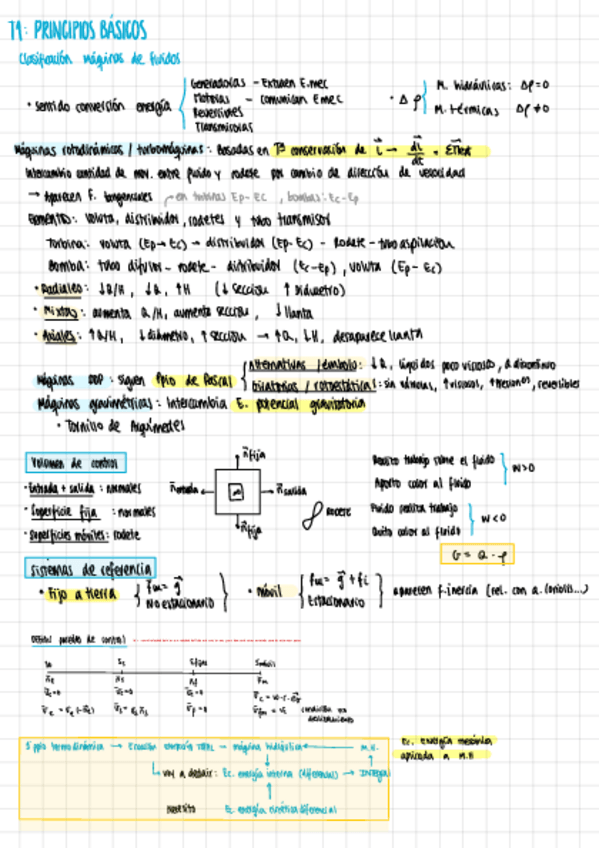 T1: PRINCIPIOS BÁSICOS
Clasificación máquinas de fluidos
• Sentido conversión energía
Generadoras - Extraen E.mec
Motoras - comunican E mec
Reversibles
Transmisoras
• Δρ
M. hidráulicas: Δρ=0
M. térmicas Δρ≠0
Máquinas rotodinámicas / turbomáquinas: Basadas en Tª conservación de
Intercambio cantidad de mov. entre fluido y rodete por cambio de dirección de velocidad
→ Aparecen F. tangenciales en turbinas Ep-Ec, bombas: Ec-Ep
Elementos: voluta, distribuidor, rodetes y tubo transmisor
Turbina: voluta (Ep→Ec) → distribuidor (Ep-Ec) - Rodete - tubo aspiración
Bomba: tubo difusor - rodete - distribuidor (Ec-Ep), voluta (Ep-Ec)
• Radiales: ↓Q/H, ↓Q, ↑H (↓ sección ↑ diámetro)
• Mixtos: aumenta Q/H, aumenta sección, ↓ llanta
• Axiales: ↑Q/H, ↓diámetro, ↑sección → ↑Q, ↓H, desaparece llanta
Máquinas DDP: siguen Ppio de Pascal
Alternativas / émbolo: ↓Q, líquidos poco viscosos, Q discontinuo
Giratorias / rotoestáticas: sin válvulas, ↑viscosos, ↑presiones, reversibles
Máquinas gravimétricas: Intercambia E. potencial gravitatoria
• Tornillo de Arquímedes
Volumen de control
• Entrada + salida: normales
• Superficie fija: normales
• Superficies móviles: rodete
n fija
n entrada
n salida
n fija
Rodete
Realizo trabajo sobre el fluido
Aporto calor al fluido
W>0
Fluido realiza trabajo
Quito calor al fluido
W<0
G = Q · ρ
Sistemas de referencia
• Fijo a tierra
fm = g
No estacionario
• Móvil
fm = g + fi
Estacionario
aparecen f.inercia (rel. con a. Coriolis...)
Se
Ss
Sfijas
Smóvil
1er ppio termodinámica → Ecuación energía TOTAL - máquina hidráulica ← M.H.
voy a deducir: Ec. energía interna (diferencial) → INTEGRAL
Necesito Ec. energía cinética diferencial
Ec. energía mecánica
aplicada a M.H